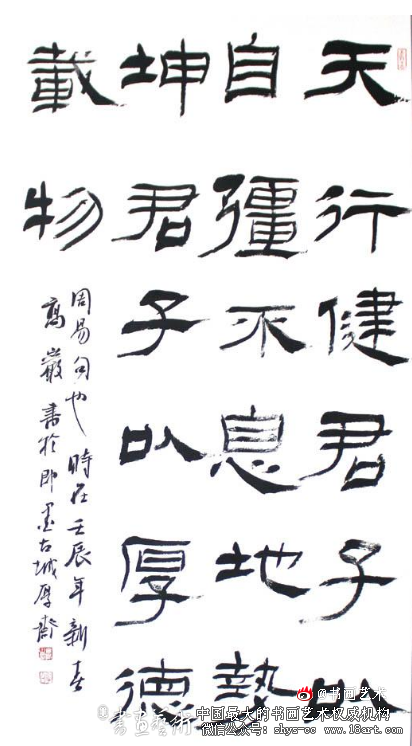 天行健君子以
自彊不息地勢
坤君子以厚德
載物
周易句也時在壬辰年新春
高巖書於即墨古城厚齋
@书画艺术
@書畫藝術
中国最大的书画艺术权威机构
公众号:shys-cc www.18art.com